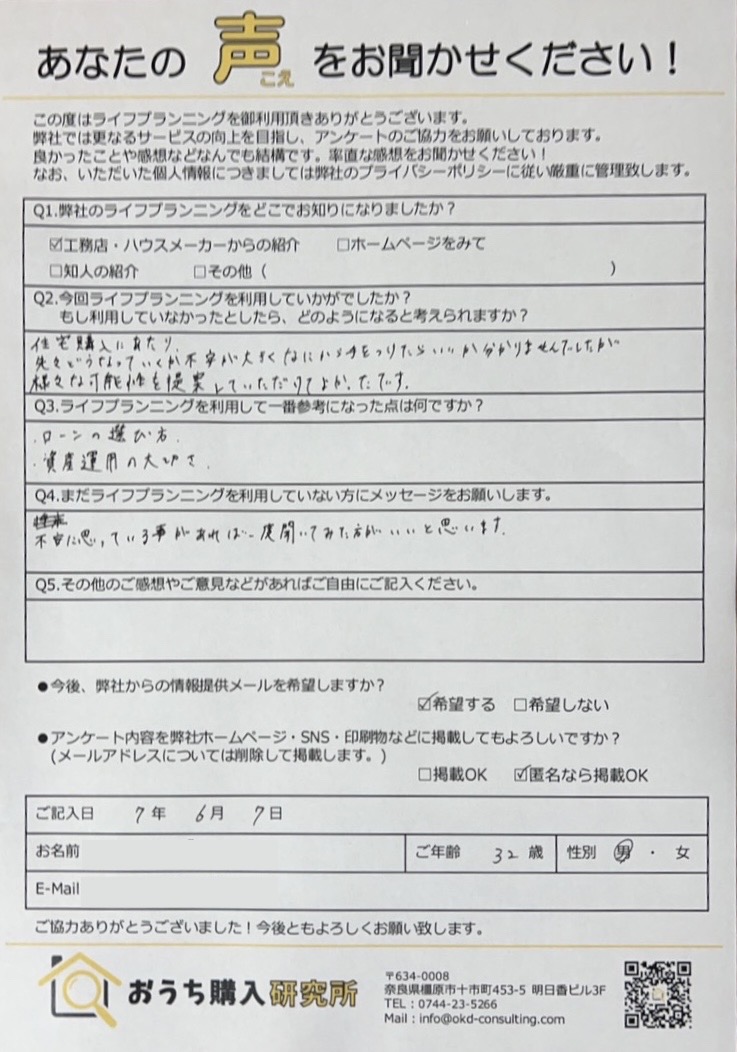 あなたの 声 をお聞かせください！
こえ
この度はライフプランニングを御利用頂きありがとうございます。
弊社では更なるサービスの向上を目指し、アンケートのご協力をお願いしております。
良かったことや感想などなんでも結構です。率直な感想をお聞かせください！
なお、いただいた個人情報につきましては弊社のプライバシーポリシーに従い厳重に管理致します。
Q1.弊社のライフプランニングをどこでお知りになりましたか？
☑工務店・ハウスメーカーからの紹介 □ホームページをみて
□知人の紹介 □その他（ ）
Q2.今回ライフプランニングを利用していかがでしたか？
もし利用していなかったとしたら、どのようになると考えられますか？
住宅購入にあたり、
先々どうなっていくか不安が大きくなにから手をつけたらいいか分かりませんでしたが
様々な可能性を提案していただけてよかったです。
Q3.ライフプランニングを利用して一番参考になった点は何ですか？
・ローンの選び方．
・資産運用の大切さ．
Q4.まだライフプランニングを利用していない方にメッセージをお願いします。
不安に思っている事があれば一度聞いてみた方がいいと思います．
Q5.その他のご感想やご意見などがあればご自由にご記入ください。
●今後、弊社からの情報提供メールを希望しますか？
☑希望する □希望しない
●アンケート内容を弊社ホームページ・SNS・印刷物などに掲載してもよろしいですか？
（メールアドレスについては削除して掲載します。）
□掲載OK ☑匿名なら掲載OK
ご記入日 7年 6月 7日
お名前 ご年齢 32 歳 性別 男 ・ 女
E-Mail
ご協力ありがとうございました！今後ともよろしくお願い致します。
おうち購入研究所
〒634-0008
奈良県橿原市十市町453-5 明日香ビル3F
TEL：0744-23-5266
Mail：info@okd-consulting.com